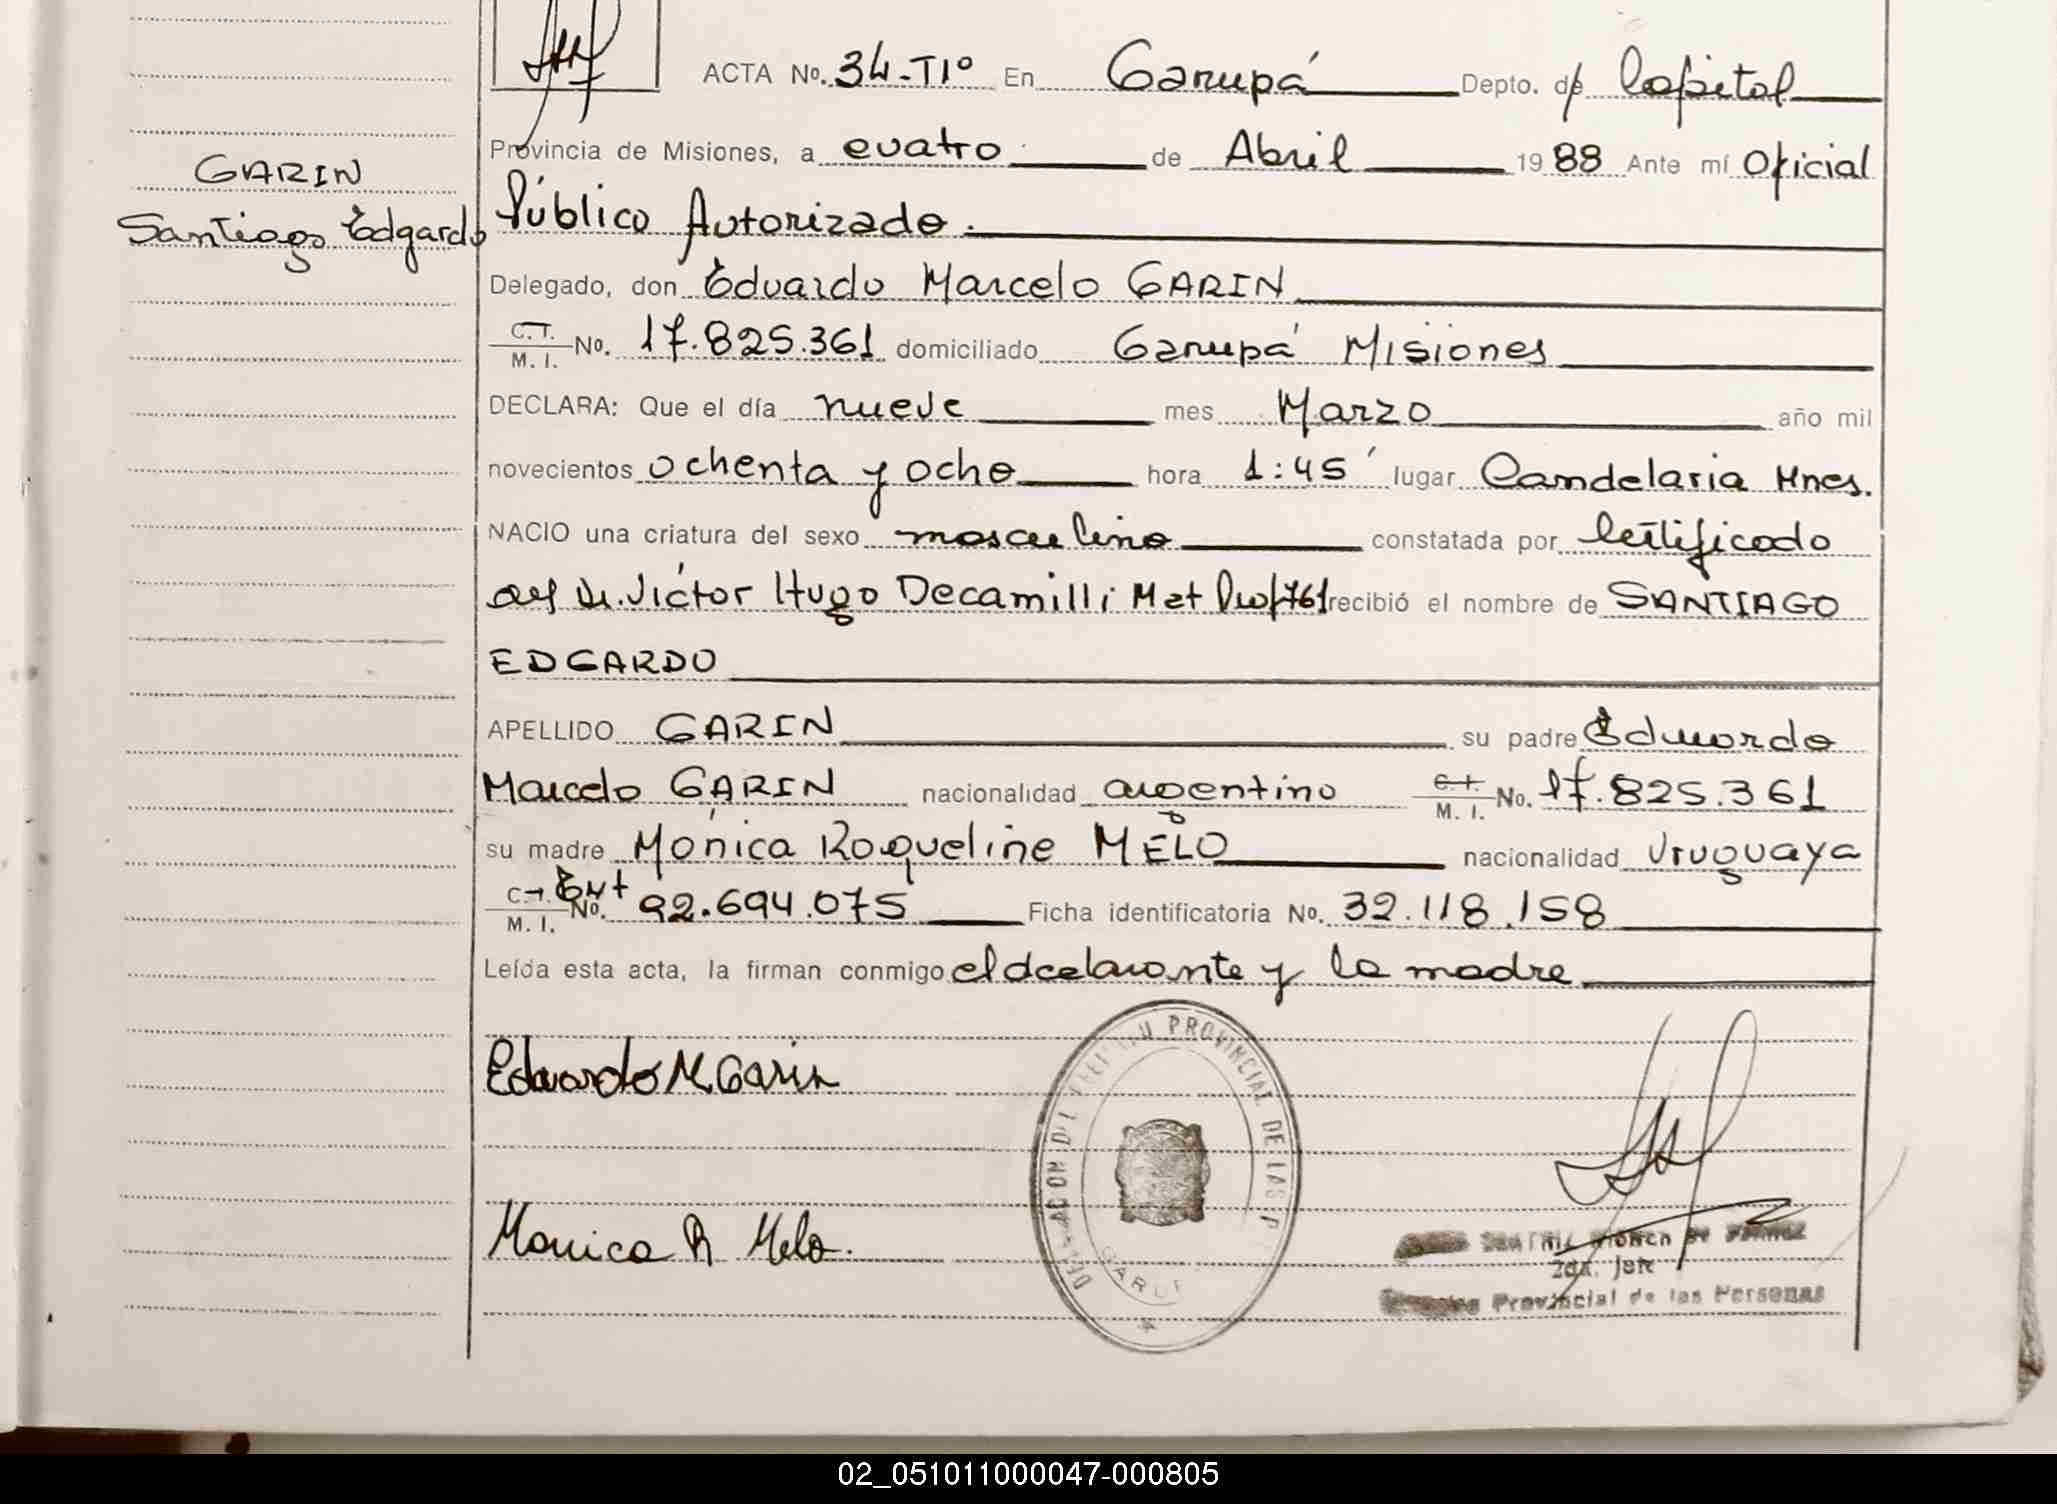 ACTA No. 34-TIº En Garupá Depto. de Capital
Provincia de Misiones, a cuatro de Abril 1988 Ante mí Oficial
GARIN
Santiago Edgardo
Público Autorizado.
Delegado, don Eduardo Marcelo GARIN
C.T. M. I. No. 17.825.361 domiciliado Garupá Misiones
DECLARA: Que el día nueve mes Marzo año mil
novecientos ochenta y ocho hora 1:45' lugar Candelaria Mnes.
NACIO una criatura del sexo masculino constatada por Certificado
del Dr. Víctor Hugo Decamilli Mat Prof 761 recibió el nombre de SANTIAGO
EDGARDO
APELLIDO GARIN su padre Eduardo
Marcelo GARIN nacionalidad argentino C.I. M. I. No. 17.825.361
su madre Mónica Roqueline MELO nacionalidad Uruguaya
C.I. M. I. Ext No. 92.694.075 Ficha identificatoria No. 32.118.158
Leída esta acta, la firman conmigo el declarante y la madre
Eduardo M. Garin
PROVINCIAL DE LAS
Monica R Melo.
2da. Jefe
Provincial de las Personas
02_051011000047-000805